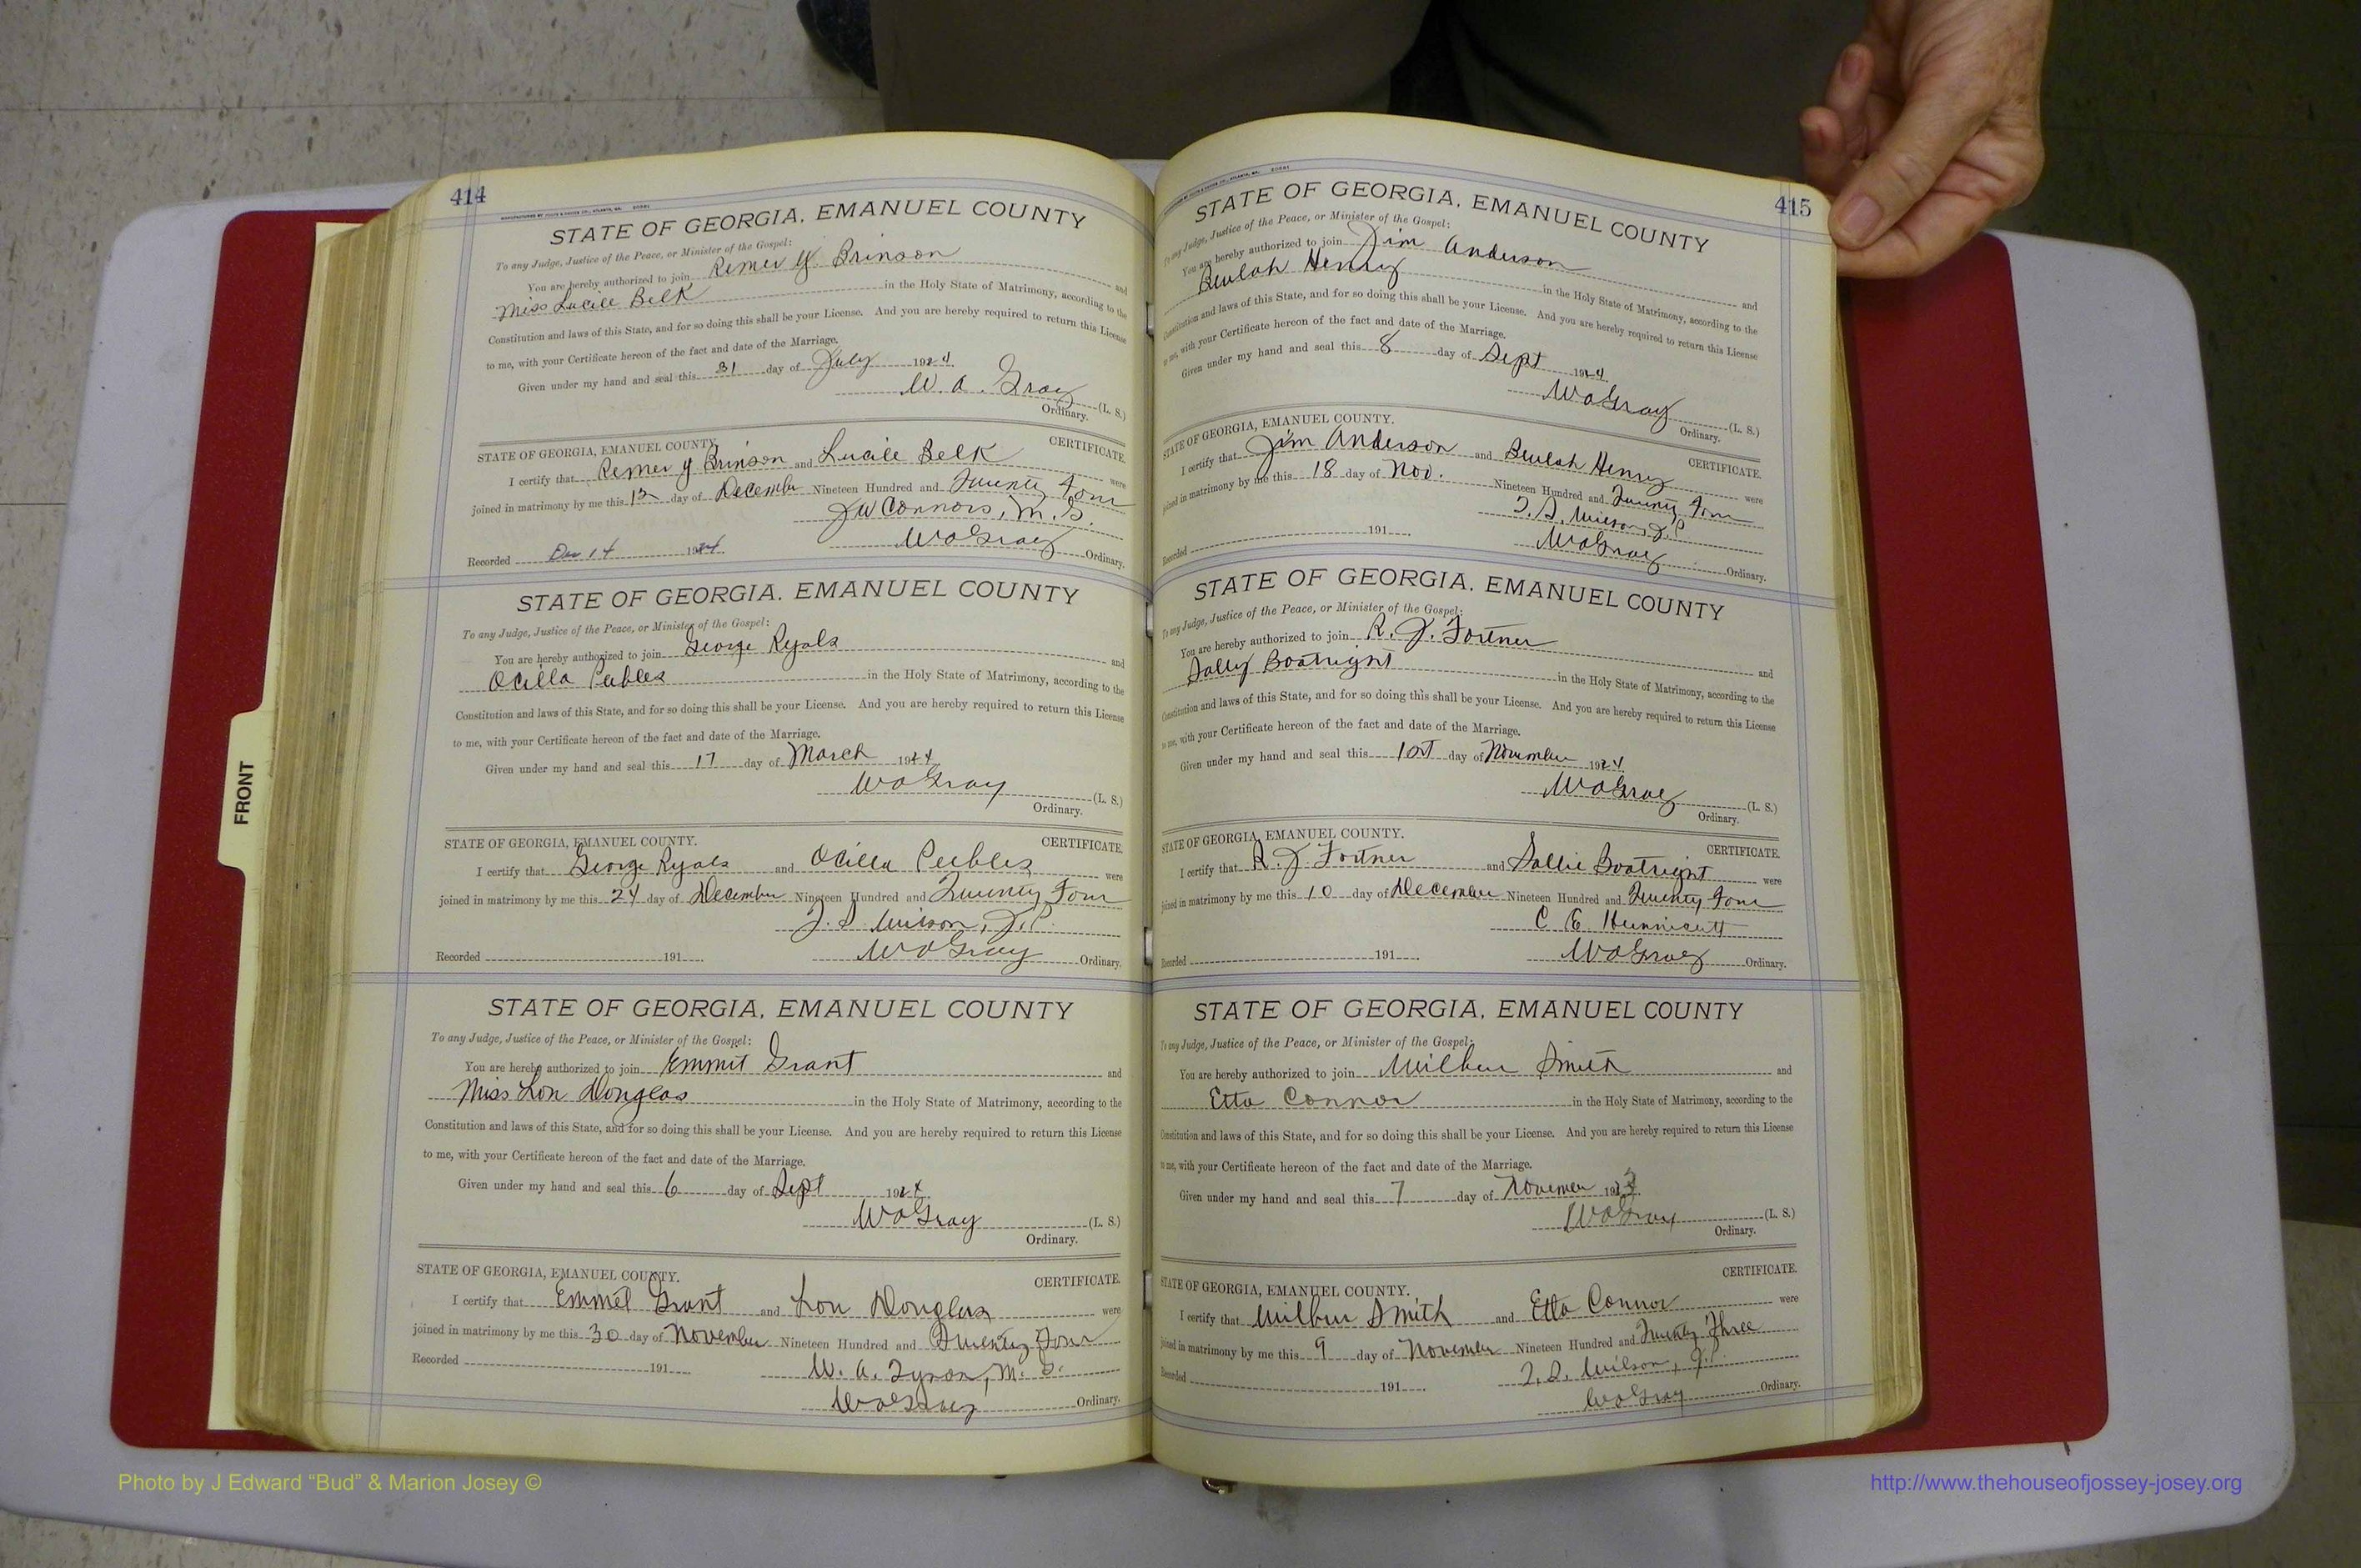 414
STATE OF GEORGIA, EMANUEL COUNTY
To any Judge, Justice of the Peace, or Minister of the Gospel:
You are hereby authorized to join Remer Y. Brinson and
Miss Lucile Belk in the Holy State of Matrimony, according to the
Constitution and laws of this State, and for so doing this shall be your License. And you are hereby required to return this License
to me, with your Certificate hereon of the fact and date of the Marriage.
Given under my hand and seal this 31 day of July 1924
W. A. Gray (L. S.)
Ordinary.
STATE OF GEORGIA, EMANUEL COUNTY. CERTIFICATE.
I certify that Remer Y Brinson and Lucile Belk were
joined in matrimony by me this day of December Nineteen Hundred and Twenty Four
J W Connors, M. G.
Recorded Dec 14 1924 W A Gray Ordinary.
STATE OF GEORGIA. EMANUEL COUNTY
To any Judge, Justice of the Peace, or Minister of the Gospel:
You are hereby authorized to join George Ryals and
Ocilla Peebles in the Holy State of Matrimony, according to the
Constitution and laws of this State, and for so doing this shall be your License. And you are hereby required to return this License
to me, with your Certificate hereon of the fact and date of the Marriage.
Given under my hand and seal this 17 day of March 1924
W A Gray (L. S.)
Ordinary.
STATE OF GEORGIA, EMANUEL COUNTY. CERTIFICATE.
I certify that George Ryals and Ocilla Peebles were
joined in matrimony by me this 24 day of December Nineteen Hundred and Twenty Four
T. S. Wilson, J.P.
Recorded 191 W A Gray Ordinary.
STATE OF GEORGIA, EMANUEL COUNTY
To any Judge, Justice of the Peace, or Minister of the Gospel:
You are hereby authorized to join Emmit Grant and
Miss Lou Douglas in the Holy State of Matrimony, according to the
Constitution and laws of this State, and for so doing this shall be your License. And you are hereby required to return this License
to me, with your Certificate hereon of the fact and date of the Marriage.
Given under my hand and seal this 6 day of Sept 1924
W A Gray (L. S.)
Ordinary.
STATE OF GEORGIA, EMANUEL COUNTY. CERTIFICATE.
I certify that Emmet Grant and Lou Douglas were
joined in matrimony by me this 30 day of November Nineteen Hundred and Twenty Four
Recorded 191 W. A. Tyson, M. G.
W A Gray Ordinary.
415
STATE OF GEORGIA, EMANUEL COUNTY
To any Judge, Justice of the Peace, or Minister of the Gospel:
You are hereby authorized to join Jim Anderson and
Beulah Henry in the Holy State of Matrimony, according to the
Constitution and laws of this State, and for so doing this shall be your License. And you are hereby required to return this License
to me, with your Certificate hereon of the fact and date of the Marriage.
Given under my hand and seal this 8 day of Sept 1924
W A Gray (L. S.)
Ordinary.
STATE OF GEORGIA, EMANUEL COUNTY. CERTIFICATE.
I certify that Jim Anderson and Beulah Henry were
joined in matrimony by me this 18 day of Nov. Nineteen Hundred and Twenty Four
T. S. Wilson, J.P.
Recorded 191 W A Gray Ordinary.
STATE OF GEORGIA, EMANUEL COUNTY
To any Judge, Justice of the Peace, or Minister of the Gospel:
You are hereby authorized to join R. J. Fortner and
Sally Boatright in the Holy State of Matrimony, according to the
Constitution and laws of this State, and for so doing this shall be your License. And you are hereby required to return this License
to me, with your Certificate hereon of the fact and date of the Marriage.
Given under my hand and seal this 1st day of November 1924
W A Gray (L. S.)
Ordinary.
STATE OF GEORGIA, EMANUEL COUNTY. CERTIFICATE.
I certify that R. J. Fortner and Sallie Boatright were
joined in matrimony by me this 10 day of December Nineteen Hundred and Twenty Four
C E Hunnicutt
Recorded 191 W A Gray Ordinary.
STATE OF GEORGIA, EMANUEL COUNTY
To any Judge, Justice of the Peace, or Minister of the Gospel:
You are hereby authorized to join Wilbur Smith and
Etta Connor in the Holy State of Matrimony, according to the
Constitution and laws of this State, and for so doing this shall be your License. And you are hereby required to return this License
to me, with your Certificate hereon of the fact and date of the Marriage.
Given under my hand and seal this 7 day of Novemer 1923
W A Gray (L. S.)
Ordinary.
STATE OF GEORGIA, EMANUEL COUNTY. CERTIFICATE.
I certify that Wilbur Smith and Etta Connor were
joined in matrimony by me this 9 day of November Nineteen Hundred and Twenty Three
T. S. Wilson, J.P.
Recorded 191 W A Gray Ordinary.
FRONT
Photo by J Edward “Bud” & Marion Josey ©
http://www.thehouseofjossey-josey.org